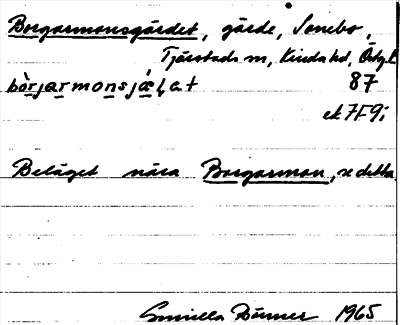 Borgarmonsgärdet, gärde, Sonebo,
Tjärstads sn, Kinda hd, Östg. l.
bòrjarmonsjǽḷat 87
ek 7F9i
Beläget nära Borgarmon, se detta.
Gunilla 1965